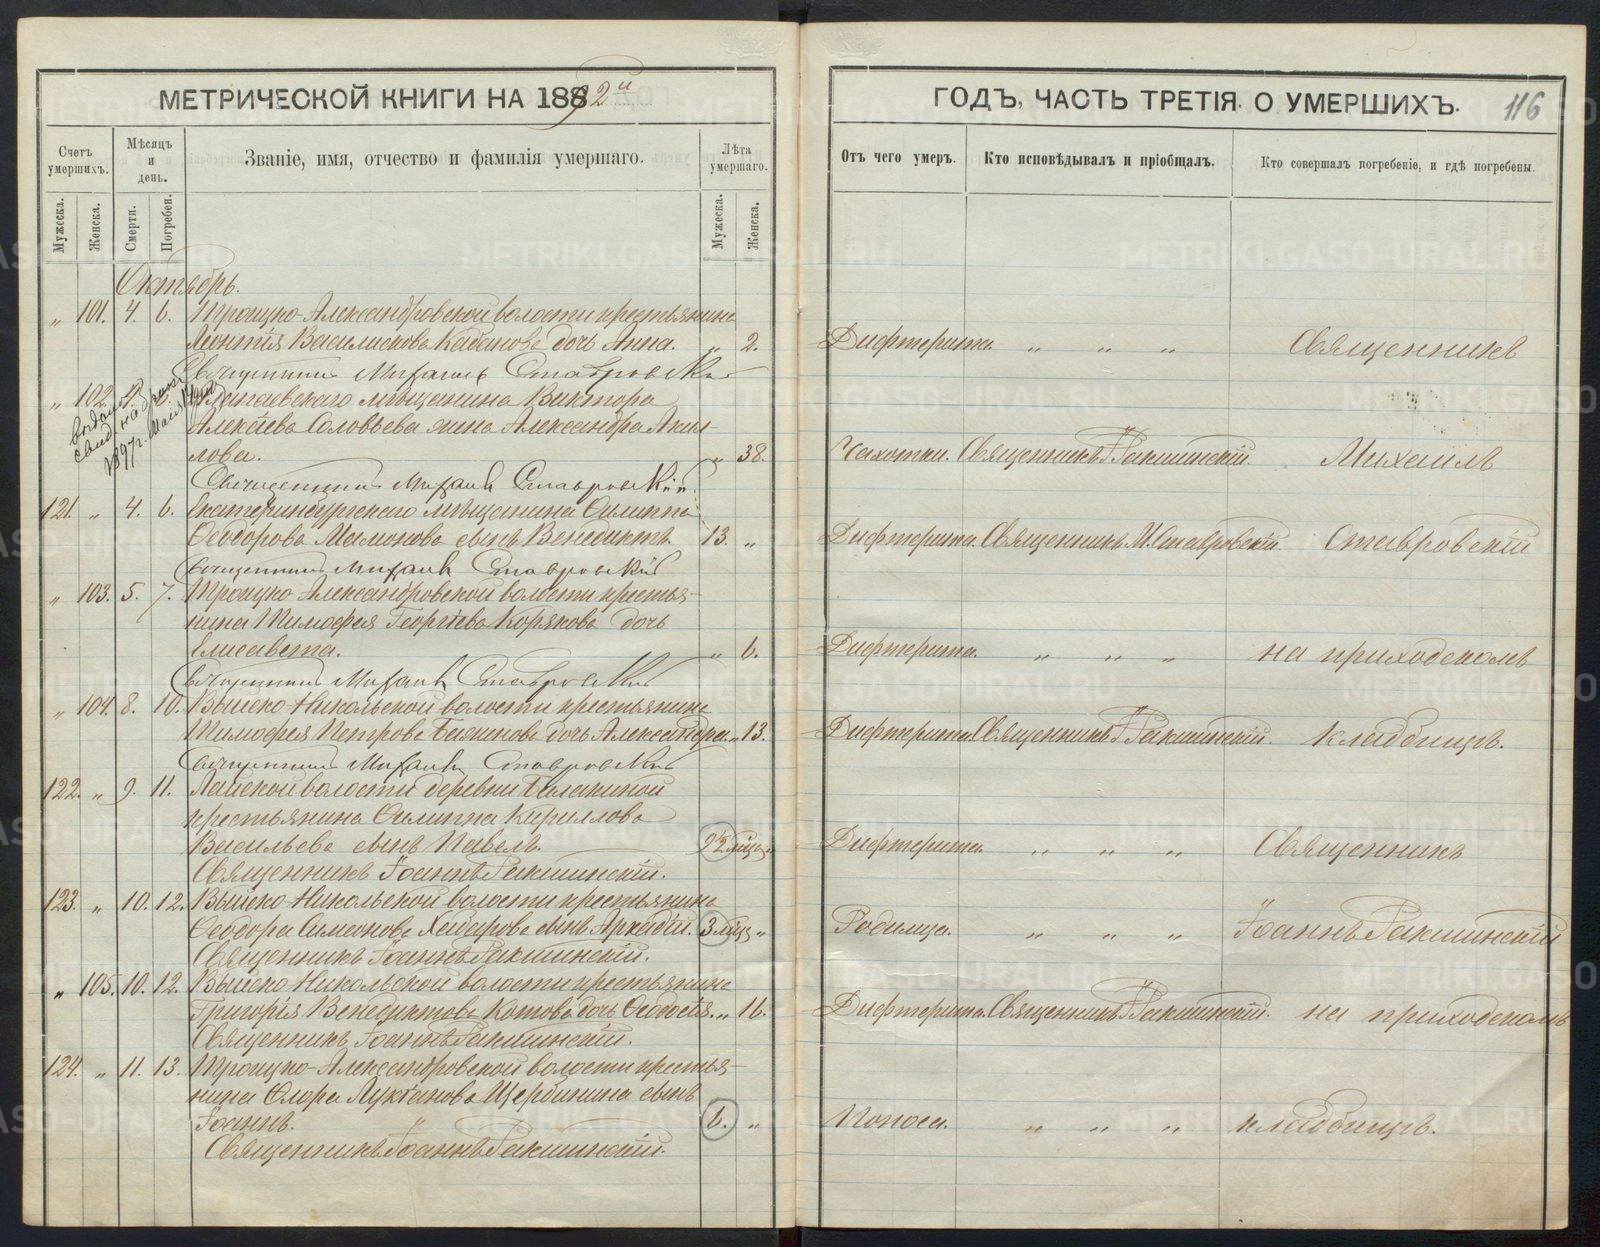 МЕТРИЧЕСКОЙ КНИГИ НА 1892й
ГОДЪ, ЧАСТЬ ТРЕТІЯ. О УМЕРШИХЪ.
116
Счетъ умершихъ.
Мѣсяцъ и день.
Званіе, имя, отчество и фамилія умершаго.
Лѣта умершаго.
Отъ чего умеръ.
Кто исповѣдывалъ и пріобщалъ.
Кто совершалъ погребеніе, и гдѣ погребены.
Мужеска.
Женска.
Смерти.
Погребен.
Мужеска.
Женска.
Октябрь.
„ 101. 4. 6. Троицко-Александровской волости крестьянина
Леонтія Василискова Кабанова дочь Анна. „ 2. Дифтерита. „ „ „ Священникъ
Священникъ Михаилъ Ставровскій
„ 102. 4. 6. Алапаевскаго мѣщанина Виктора
Алексѣева Соловьева жена Александра Акил-
лова. „ 38. Чахотки. Священникъ І. Ракшинскій. Михаилъ
выдано
свид. на бракъ
1897г. Мая
Священникъ Михаилъ Ставровскій.
121. „ 4. 6. Екатеринбургскаго мѣщанина Филиппа
Ѳеодорова Мамонова сынъ Венедиктъ. 13. „ Дифтерита. Священникъ М. Ставровскій. Ставровскій
Священникъ Михаилъ Ставровскій
„ 103. 5. 7. Троицко-Александровской волости крестья-
нина Тимоѳея Георгіева Корякова дочь
Елисавета. „ 6. Дифтерита. „ „ „ на приходскомъ
Священникъ Михаилъ Ставровскій
„ 104. 8. 10. Выйско-Никольской волости крестьянина
Тимоѳея Петрова дочь Александра. „ 13. Дифтерита. Священникъ І. Ракшинскій. кладбищѣ.
Священникъ Михаилъ Ставровскій
122. „ 9. 11. Лайской волости деревни Балакиной
крестьянина Филиппа Кириллова
Васильева сынъ Павелъ. 9½ мѣсяц. „ Дифтерита. „ „ „ Священникъ
Священникъ Іоаннъ Ракшинскій.
123. „ 10. 12. Выйско-Никольской волости крестьянина
Ѳеодора Симеонова Хайдарова сынъ Аркадій. 3 мѣц „ Родимца. „ „ „ Іоаннъ Ракшинскій
Священникъ Іоаннъ Ракшинскій.
„ 105. 10. 12. Выйско-Никольской волости крестьянина
Григорія Венедиктова Котова дочь Ѳеодосія. „ 16. Дифтерита. Священникъ І. Ракшинскій. на приходскомъ
Священникъ Іоаннъ Ракшинскій.
124. „ 11. 13. Троицко-Александровской волости крестья-
нина Флора Лукіанова Щербинина сынъ
Іоаннъ. 6. „ Поноса. „ „ „ кладбищѣ.
Священникъ Іоаннъ Ракшинскій.
METRIKI.GASO-URAL.RU